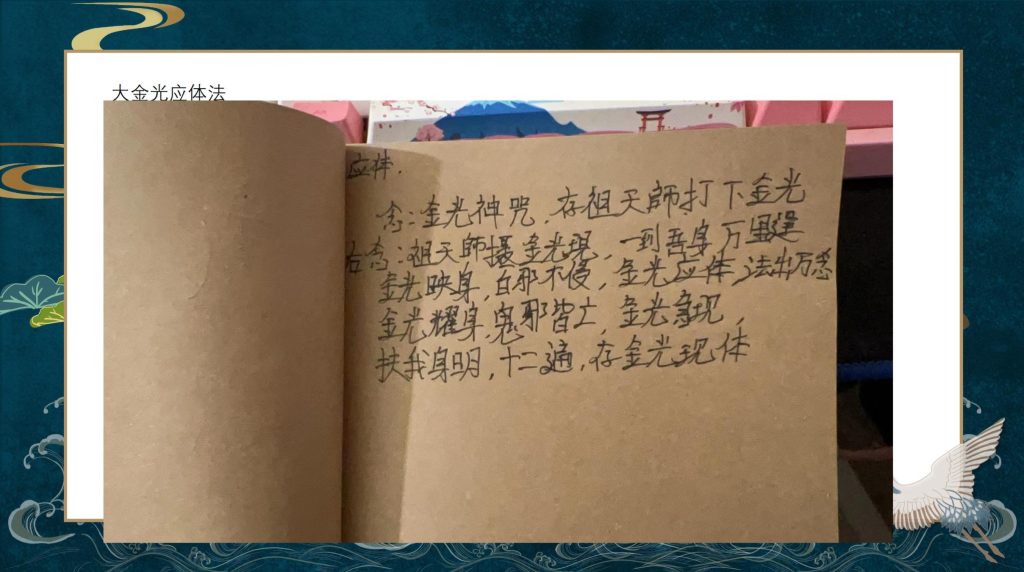 大金光应体法
应体.
念:金光神咒.存祖天師打下金光
右念:祖天師摄金光现,一到吾身万里遥
金光映身,白邪不侵,金光应体,法出万念
金光耀身,鬼邪皆亡,金光急现,
扶我身明,十二遍.存金光现体